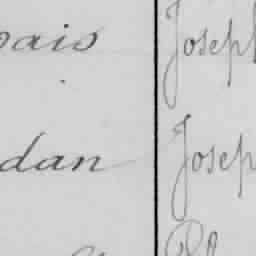 pais Joseph
dan Josep